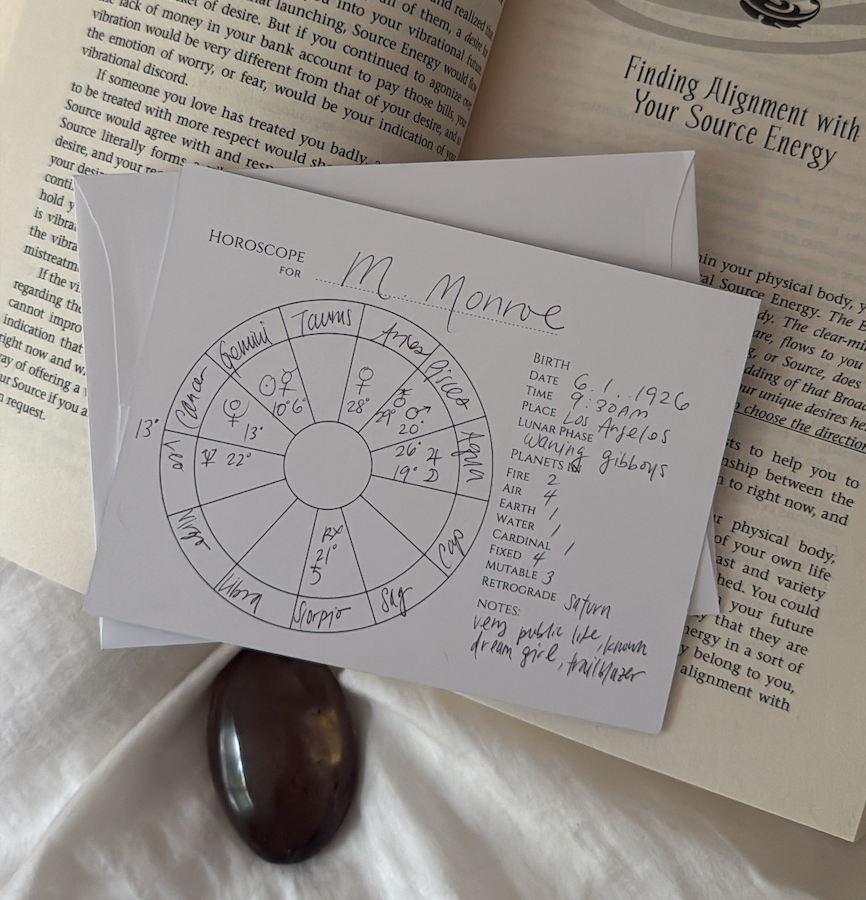 and realized
all of them, a desire
into your vibrational future
launching, Source Energy would flow
of desire. But if you continued to agonize over
lack of money in your bank account to pay those bills, your
vibration would be very different from that of your desire, and
the emotion of worry, or fear, would be your indication of
vibrational discord.
If someone you love has treated you badly,
to be treated with more respect would
Source would agree with and
Source literally forms
desire, and your
your
hold
is
the
If the
regarding the
cannot
indication that
right now and
way of offering a
Source if you
request.
Finding Alignment with
Your Source Energy
HOROSCOPE
FOR M Monroe
Gemini
Taurus
Aries
Pisces
Cancer
Aqua
Leo
Cap
Virgo
Libra
Scorpio
Sag
☉ ☿
10° 6°
♀
28°
29° ♂
20°
26° ♃
19° D
13°
13°
♆ 22°
Rx
21°
♄
BIRTH
DATE 6.1..1926
TIME 9:30AM
PLACE Los Angelos
LUNAR PHASE
waning gibbous
PLANETS IN
FIRE 2
AIR 4
EARTH 1
WATER 1
CARDINAL 1
FIXED 4
MUTABLE 3
RETROGRADE saturn
NOTES:
very public life, known
dream girl, trailblazer
within your physical body,
Source Energy. The
The
flows to you
or Source, does
of that
your unique desires
choose the direction
to help you to
between the
to right now, and
physical body,
of your own life
and variety
You could
your future
that they are
in a sort of
belong to you,
alignment with